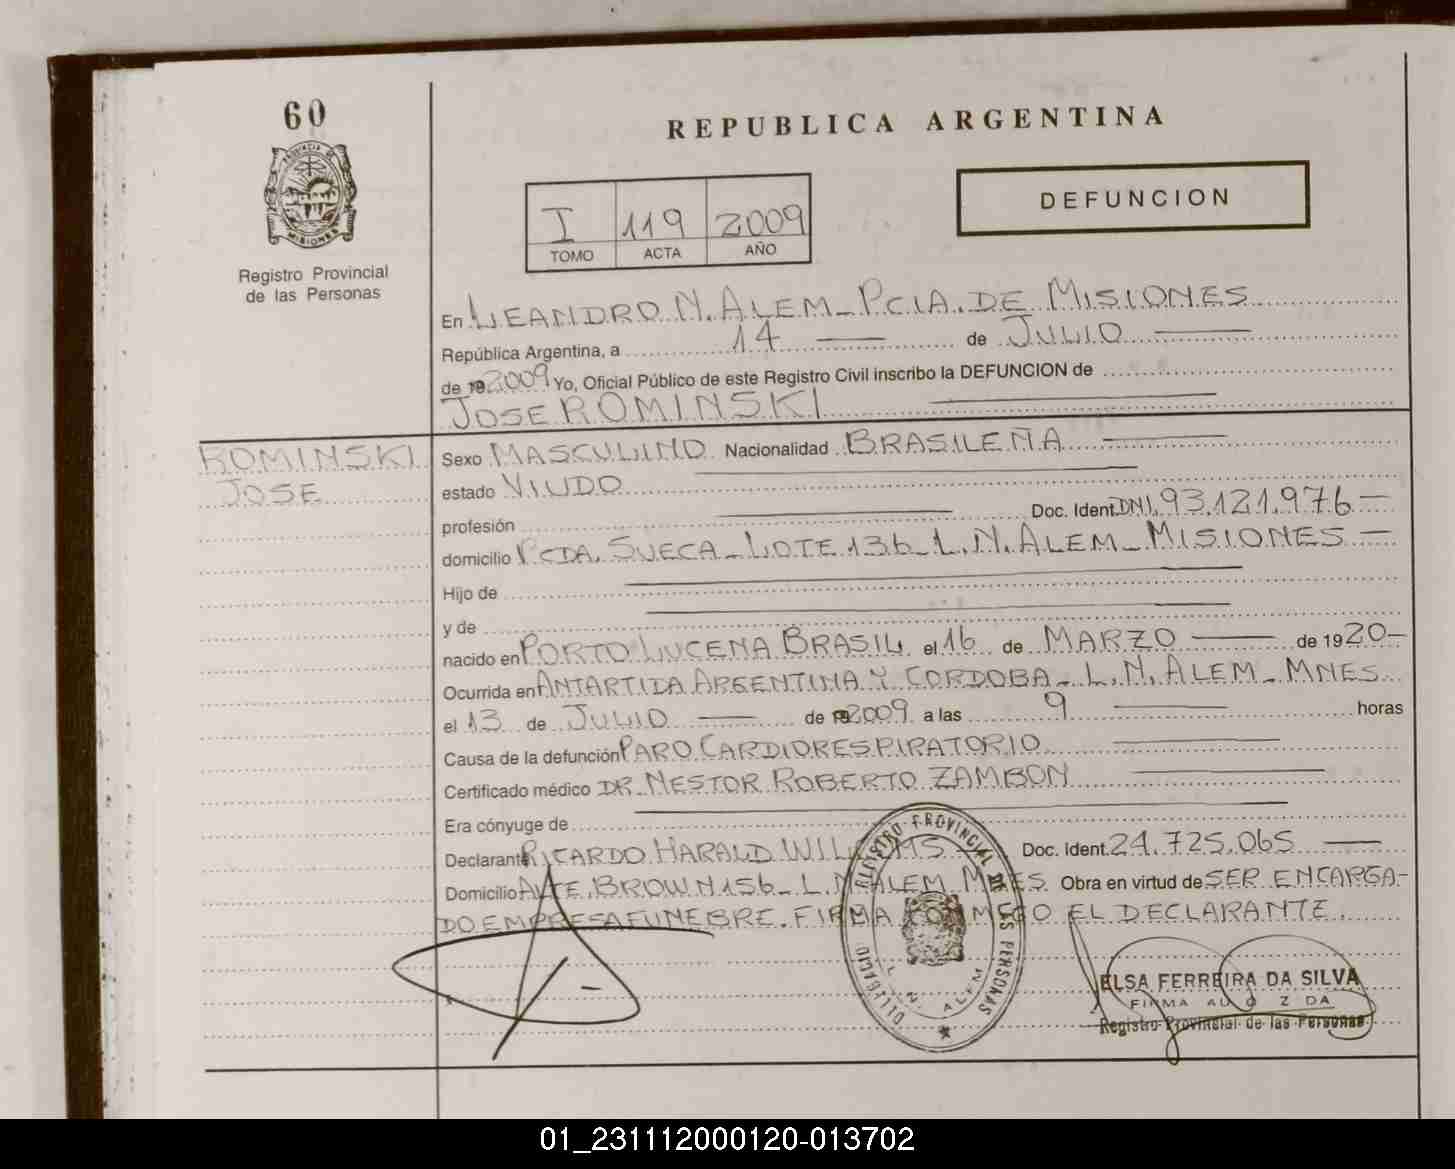 60
REPUBLICA ARGENTINA
PROVINCIA DE
MISIONES
Registro Provincial
de las Personas
DEFUNCION
I 119 2009
TOMO ACTA AÑO
En LEANDRO N. ALEM - PCIA. DE MISIONES
República Argentina, a 14 de JULIO
de 2009 Yo, Oficial Público de este Registro Civil inscribo la DEFUNCION de
JOSE ROMINSKI
ROMINSKI
JOSE
Sexo MASCULINO Nacionalidad BRASILEÑA
estado VIUDO
profesión Doc. Ident. DNI. 93.121.976 -
domicilio PCDA. SUECA - LOTE 136 - L. N. ALEM - MISIONES -
Hijo de
y de
nacido en PORTO LUCENA BRASIL el 16 de MARZO de 1920 -
Ocurrida en ANTARTIDA ARGENTINA Y CORDOBA - L. N. ALEM - MNES
el 13 de JULIO de 2009 a las 9 horas
Causa de la defunción PARO CARDIORESPIRATORIO
Certificado médico DR. NESTOR ROBERTO ZAMBON
Era cónyuge de
Declarante RICARDO HARALD Doc. Ident. 24.725.065
Domicilio ALTE. BROWN 156 - L. N. ALEM MNES. Obra en virtud de SER ENCARGA-
DO EMPRESA FUNEBRE. FIRMA CONMIGO EL DECLARANTE.
REGISTRO PROVINCIAL DE LAS PERSONAS
L. N. ALEM
ELSA FERREIRA DA SILVA
FIRMA
Registro Provincial de las Personas
01_231112000120-013702